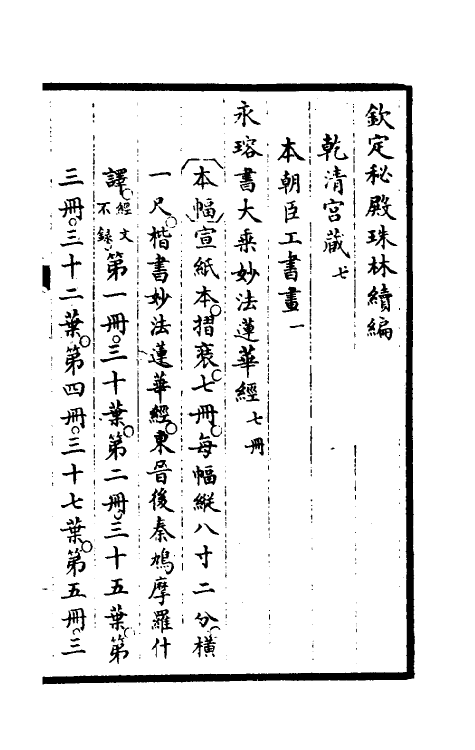 欽定秘殿珠林續編
乾清宮藏七
本朝臣工書畫一
永瑢書大乘妙法蓮華經七冊
本幅宣紙本摺裝七冊每幅縱八寸二分橫
一尺楷書妙法蓮華經東晉後秦鳩摩羅什
譯經文不錄第一冊三十葉第二冊三十五葉第
三冊三十二葉第四冊三十七葉第五冊三